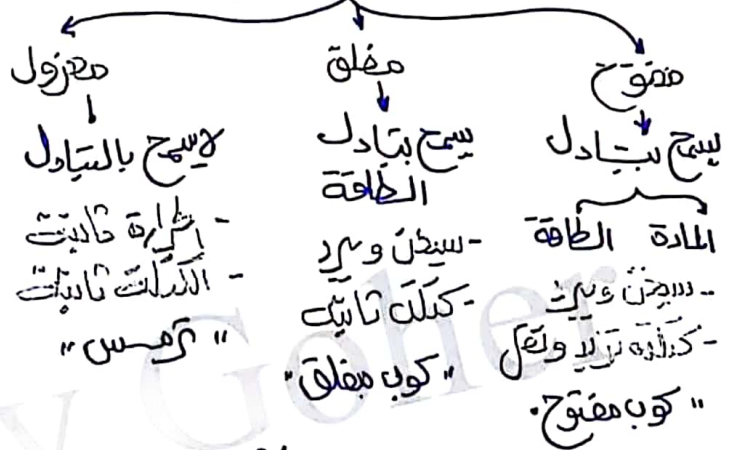 مفتوح
يسمح بتبادل
المادة الطاقة
- سيخن ويبرد
- كتلته تزيد وتقل
"كوب مفتوح"
مغلق
يسمح بتبادل
الطاقة
- سيخن ويبرد
- كتلته ثابتة
"كوب مغلق"
معزول
لا يسمح بالتبادل
- الحرارة ثابتة
- الكتلة ثابتة
"ترمس"
Goher